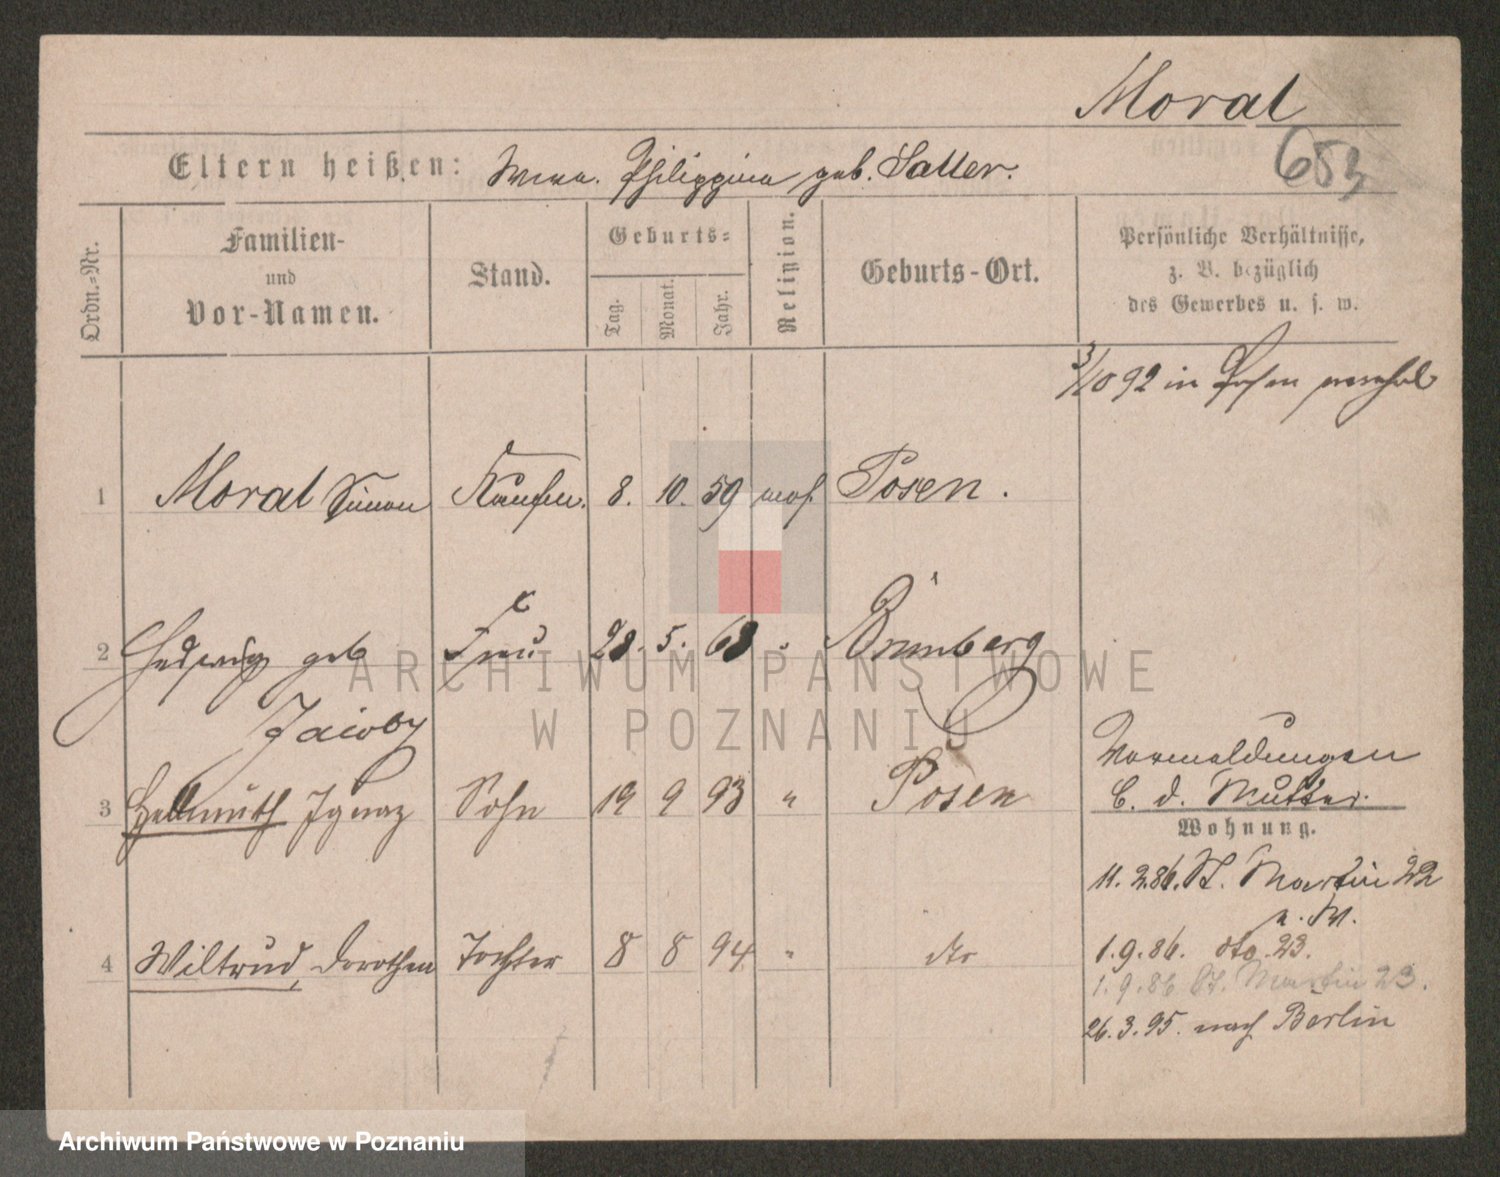 Moral
653
Eltern heißen: Philippina geb. Satter.
Ordn.-Nr.
Familien-
und
Vor-Namen.
Stand.
Geburts-
Tag.
Monat.
Jahr.
Religion.
Geburts-Ort.
Persönliche Verhältnisse,
z. B. bezüglich
des Gewerbes u. s. w.
3/10 92 in Posen verehel
1 Moral Simon Kaufm. 8. 10. 59 mos. Posen.
2 Hedwig geb Frau 28. 5. 68 " Bromberg
Jacoby
3 Hellmuth Ignaz Sohn 19 9 93 " Posen
4 Wiltrud, Dorothea Tochter 8 8 94 " dto
Vormeldungen
b. d. Mutter.
Wohnung.
11. 2. 86. St. Martin 22
b. M.
1. 9. 86. dto 23.
1. 9. 86 St. Martin 23.
26. 3. 95. nach Berlin
ARCHIWUM PAŃSTWOWE
W POZNANIU
Archiwum Państwowe w Poznaniu